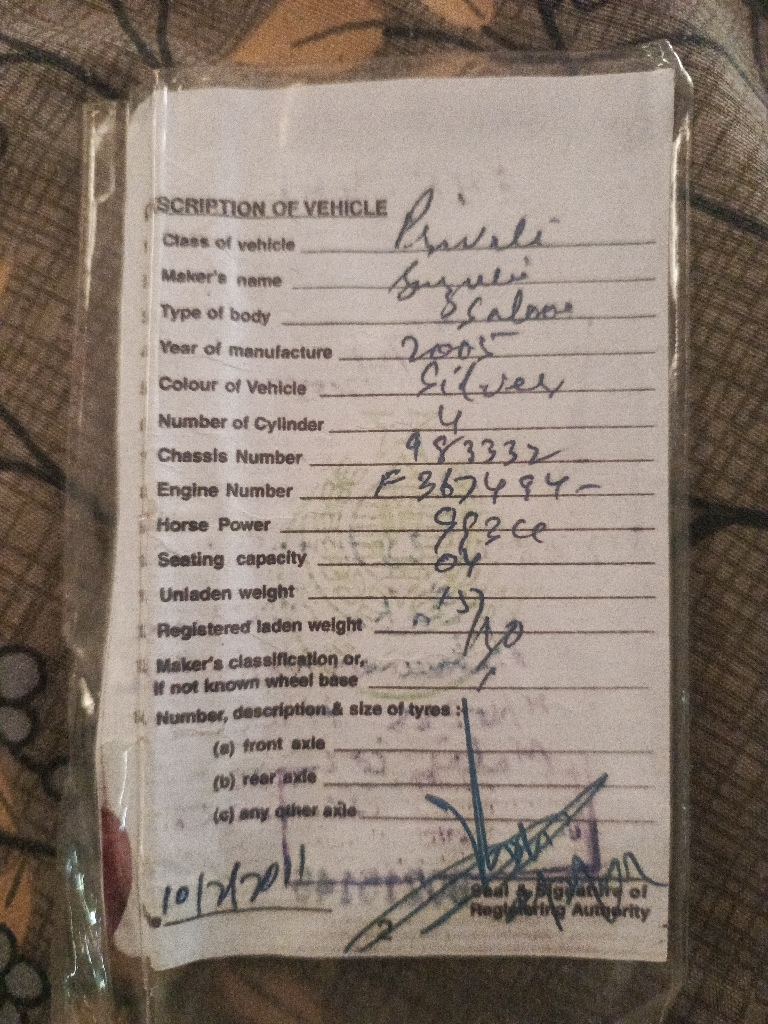 SCRIPTION OF VEHICLE
Class of vehicle Private
Maker's name Suzuki
Type of body Saloon
Year of manufacture 2005
Colour of Vehicle Silver
Number of Cylinder 4
Chassis Number 983332
Engine Number F367494-
Horse Power 993cc
Seating capacity 04
Unladen weight
Registered laden weight
Maker's classification or,
if not known wheel base
Number, description & size of tyres :-
(a) front axle
(b) rear axle
(c) any other axle
10/2/2011
Seal & Signature of
Registering Authority
2